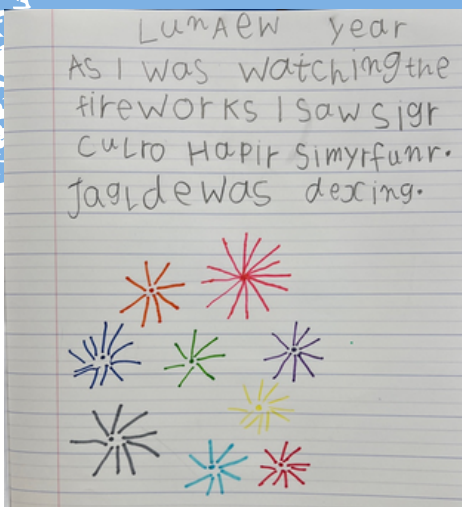 LunAew year
As I was watching the
fireworks I saw sigr
Culro Hapir simyrfunr.
Jagldewas dexing.